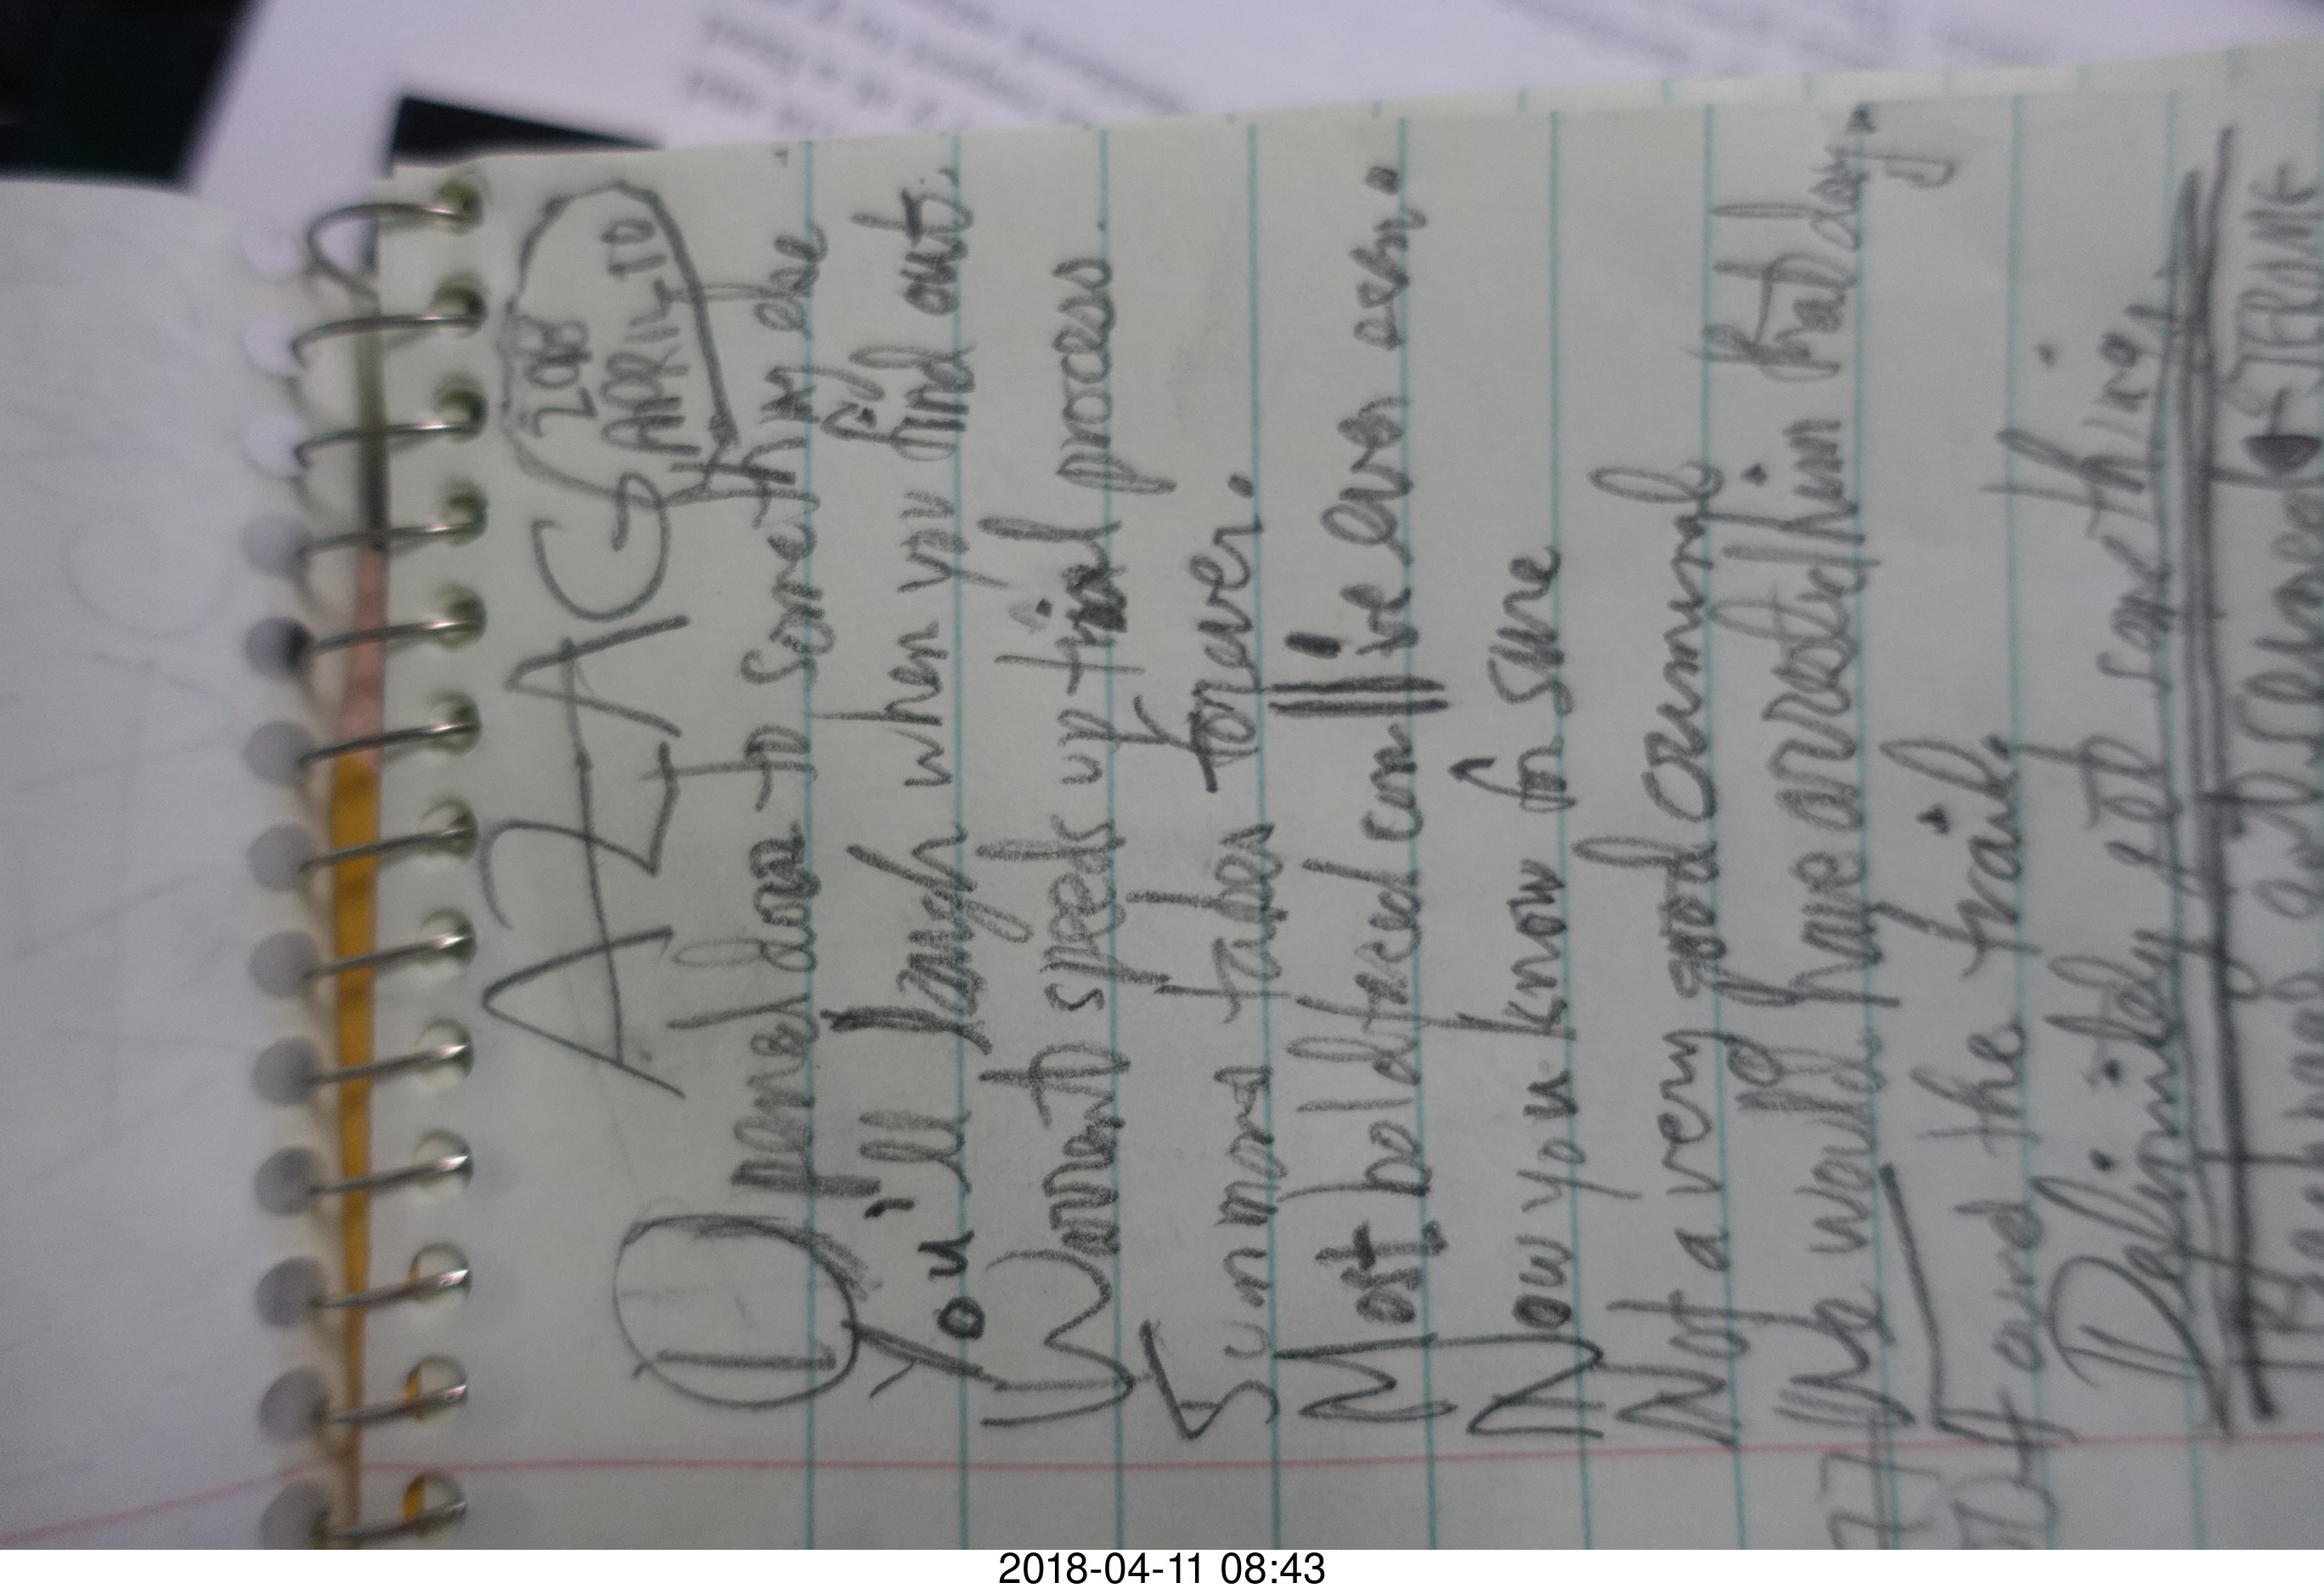 AZAG
2018
APRIL 10
① pamel down to somethin else.
You'll laugh when you find out.
Warrents speeds up trial process.
Summons takes forever.
Most bold faced con I've ever seen.
Now you know for sure
Not a very good criminal
We would have arrested him that day
and the trail.
Definitely got something
JEROME
2018-04-11 08:43